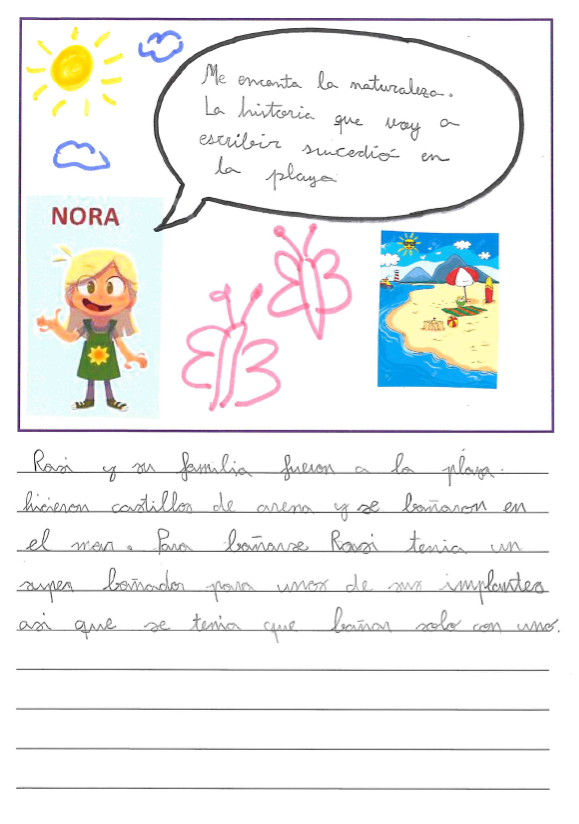 Me encanta la naturaleza.
La historia que voy a
escribir sucedió en
la playa
NORA
Rosi y su familia fueron a la playa.
hicieron castillos de arena y se bañaron en
el mar. Para bañarse Rosi tenia un
super bañador para unos de sus implantes
asi que se tenia que bañar solo con uno.